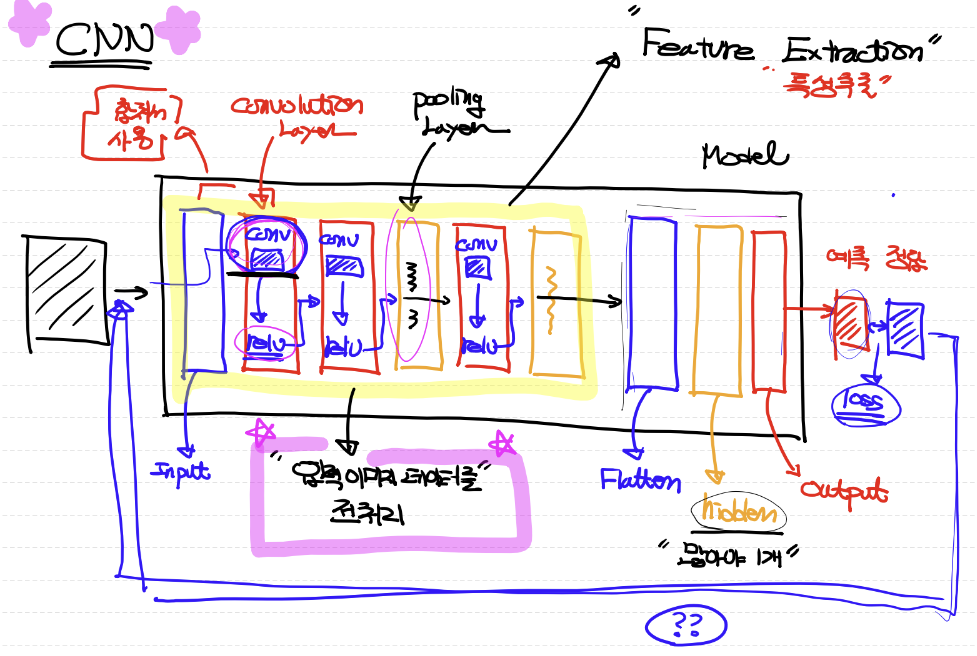 CNN
"Feature Extraction"
"특성추출"
사용
convolution
Layer
pooling
Layer
Model
conv
conv
conv
relu
relu
relu
예측 정답
loss
Input
"입력 이미지 데이터를"
전처리
Flatten
hidden
"많아야 1개"
output
??